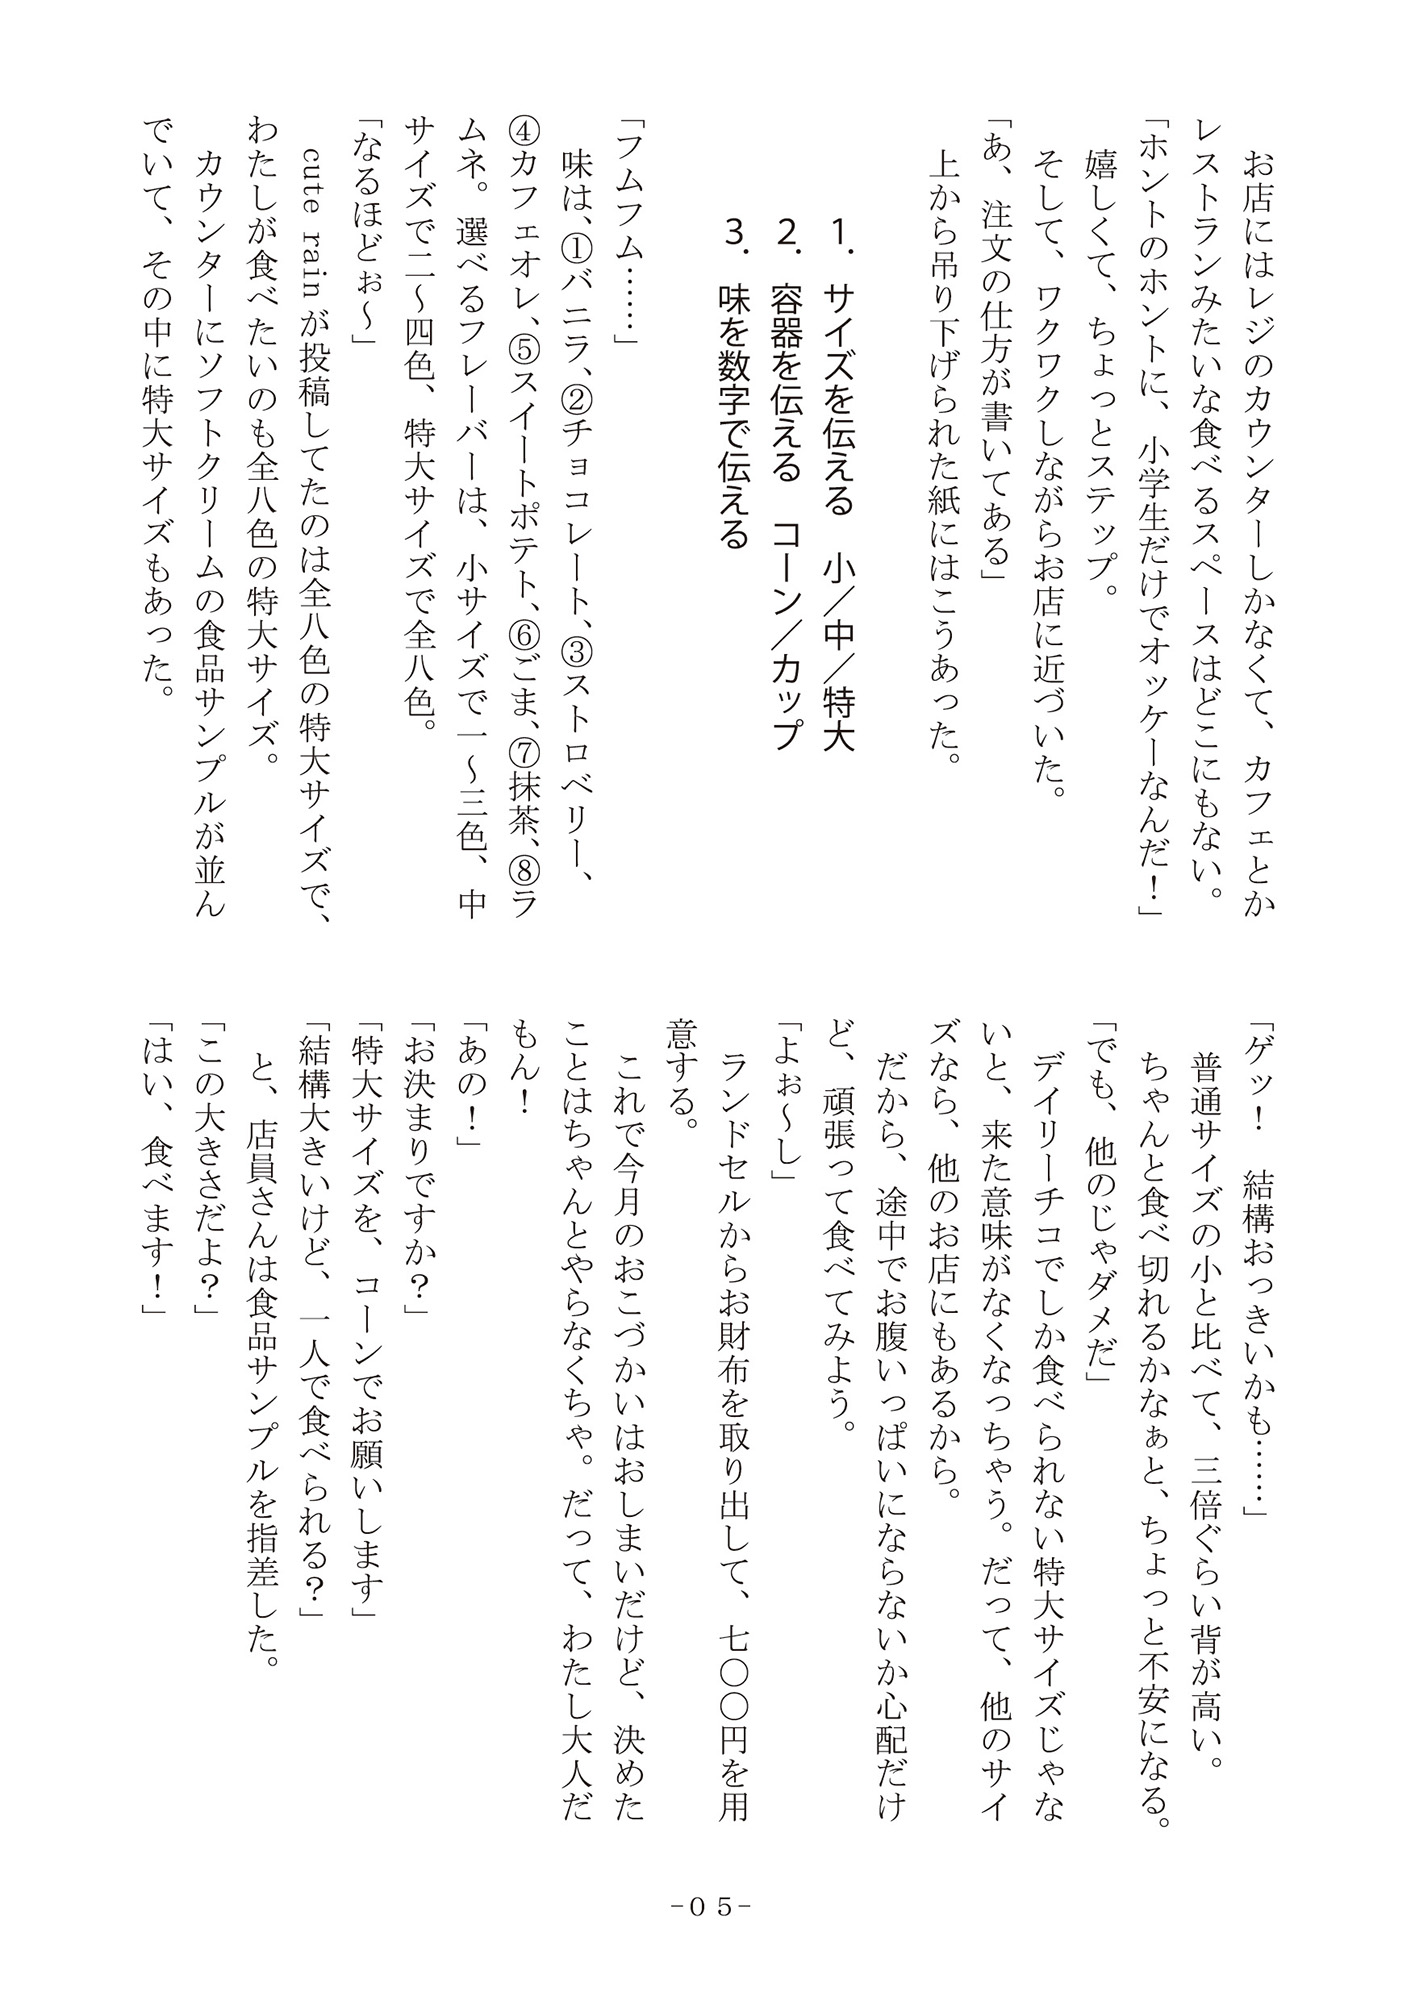 お店にはレジのカウンターしかなくて、カフェとか
レストランみたいな食べるスペースはどこにもない。
「ホントのホントに、小学生だけでオッケーなんだ！」
　嬉しくて、ちょっとステップ。
　そして、ワクワクしながらお店に近づいた。
「あ、注文の仕方が書いてある」
　上から吊り下げられた紙にはこうあった。
1．サイズを伝える　小／中／特大
2．容器を伝える　コーン／カップ
3．味を数字で伝える
「フムフム……」
　味は、①バニラ、②チョコレート、③ストロベリー、
④カフェオレ、⑤スイートポテト、⑥ごま、⑦抹茶、⑧ラ
ムネ。選べるフレーバーは、小サイズで一〜三色、中
サイズで二〜四色、特大サイズで全八色。
「なるほどぉ〜」
　cute rainが投稿してたのは全八色の特大サイズで、
わたしが食べたいのも全八色の特大サイズ。
　カウンターにソフトクリームの食品サンプルが並ん
でいて、その中に特大サイズもあった。
「ゲッ！　結構おっきいかも……」
　普通サイズの小と比べて、三倍ぐらい背が高い。
　ちゃんと食べ切れるかなぁと、ちょっと不安になる。
「でも、他のじゃダメだ」
　デイリーチコでしか食べられない特大サイズじゃな
いと、来た意味がなくなっちゃう。だって、他のサイ
ズなら、他のお店にもあるから。
　だから、途中でお腹いっぱいにならないか心配だけ
ど、頑張って食べてみよう。
「よぉ〜し」
　ランドセルからお財布を取り出して、七〇〇円を用
意する。
　これで今月のおこづかいはおしまいだけど、決めた
ことはちゃんとやらなくちゃ。だって、わたし大人だ
もん！
「あの！」
「お決まりですか？」
「特大サイズを、コーンでお願いします」
「結構大きいけど、一人で食べられる？」
　と、店員さんは食品サンプルを指差した。
「この大きさだよ？」
「はい、食べます！」
-０５-